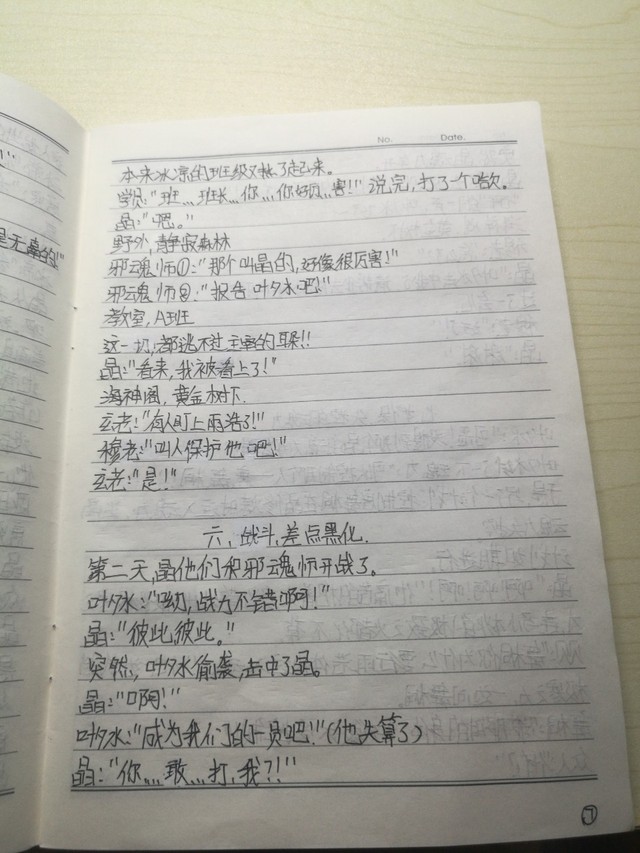 No. Date.
本来冰凉的班级又热了起来。
学员:"班,,,班长,你,,,你好厉,,,害!" 说完,打了一个哈欠。
晶:"吧。"
野外,静寂森林
邪魂师①:"那个叫晶的,好像很厉害!"
邪魂师②:"报告叶夕水吧!"
教室,A班
这一切,都逃不过主宰的耳朵!!
晶:"看来,我被看上了!"
海神阁,黄金树下.
玄老:"有人盯上雨浩了!"
穆老:"叫人保护他吧!"
玄老:"是!"
六、战斗,差点黑化.
第二天,晶他们和邪魂师开战了。
叶夕水:"哟,战力不错啊!"
晶:"彼此彼此。"
突然,叶夕水偷袭,击中了晶。
晶:"啊!"
叶夕水:"成为我们的一员吧!"(他失算了)
晶:"你,,,,敢,,,,打,我?!"
⑦
是无辜的!"